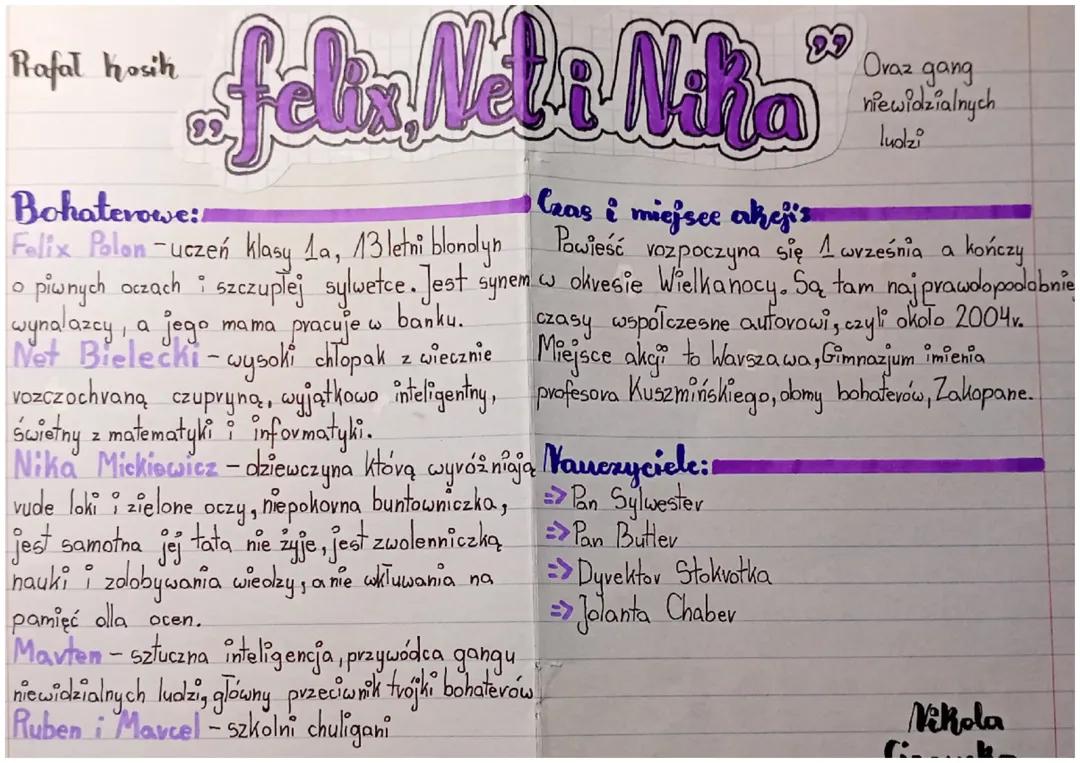 Rafał Kosik
„Felix, Net i Nika”
Oraz gang
niewidzialnych
ludzi
Bohaterowe:
Felix Polon - uczeń klasy 1a, 13 letni blondyn
o piwnych oczach i szczupłej sylwetce. Jest synem
wynalazcy, a jego mama pracuje w banku.
Net Bielecki - wysoki chłopak z wiecznie
rozczochraną czupryną, wyjątkowo inteligentny,
świetny z matematyki i informatyki.
Nika Mickiewicz - dziewczyna którą wyróżniają
rude loki i zielone oczy, niepokorna buntowniczka,
jest samotna jej tata nie żyje, jest zwolenniczką
nauki i zdobywania wiedzy, a nie wkłuwania na
pamięć dla ocen.
Marten - sztuczna inteligencja, przywódca gangu
niewidzialnych ludzi, główny przeciwnik trójki bohaterów
Ruben i Marcel - szkolni chuligani
Czas i miejsce akcji:
Powieść rozpoczyna się 1 września a kończy
w okresie Wielkanocy. Są tam najprawdopodobnie
czasy współczesne autorowi, czyli około 2004r.
Miejsce akcji to Warszawa, Gimnazjum imienia
profesora Kuszmińskiego, domy bohaterów, Zakopane.
Nauczyciele:
=> Pan Sylwester
=> Pan Butler
=> Dyrektor Stokrotka
=> Jolanta Chaber
Nikola